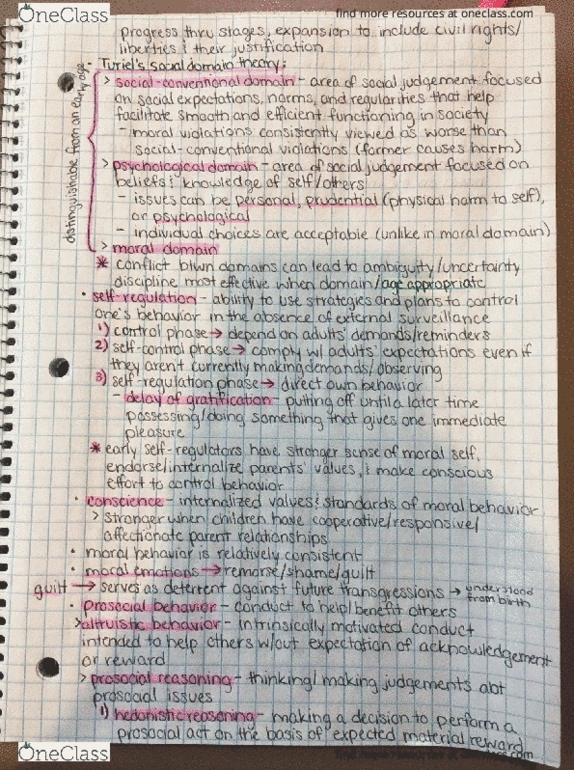 OneClass
find more resources at oneclass.com
progress thru stages, expansion to include civil rights/
liberties & their justification
- Turiel's social domain theory:
distinguishable from an early age
> social-conventional domain - area of social judgement focused
on social expectations, norms, and regularities that help
facilitate smooth and efficient functioning in society
- moral violations consistently viewed as worse than
social-conventional violations (former causes harm)
> psychological domain - area of social judgement focused on
beliefs & knowledge of self/others
- issues can be personal, prudential (physical harm to self),
or psychological
- individual choices are acceptable (unlike in moral domain)
> moral domain
* conflict btwn domains can lead to ambiguity/uncertainty
discipline most effective when domain/age appropriate
• self-regulation - ability to use strategies and plans to control
one's behavior in the absence of external surveillance
1) control phase → depend on adults' demands/reminders
2) self-control phase → comply w/ adults' expectations even if
they aren't currently making demands/observing
3) self-regulation phase → direct own behavior
- delay of gratification - putting off until a later time
possessing/doing something that gives one immediate
pleasure
* early self-regulators have stronger sense of moral self,
endorse/internalize parents' values, & make conscious
effort to control behavior
• conscience - internalized values & standards of moral behavior
> stronger when children have cooperative/responsive/
affectionate parent relationships
• moral behavior is relatively consistent
• moral emotions → remorse/shame/guilt
guilt → serves as deterrent against future transgressions → understood
from birth
• prosocial behavior - conduct to help/benefit others
> altruistic behavior - intrinsically motivated conduct
intended to help others w/out expectation of acknowledgement
or reward
> prosocial reasoning - thinking/making judgements abt
prosocial issues
1) hedonistic reasoning - making a decision to perform a
prosocial act on the basis of expected material reward
OneClass
find more resources at oneclass.com